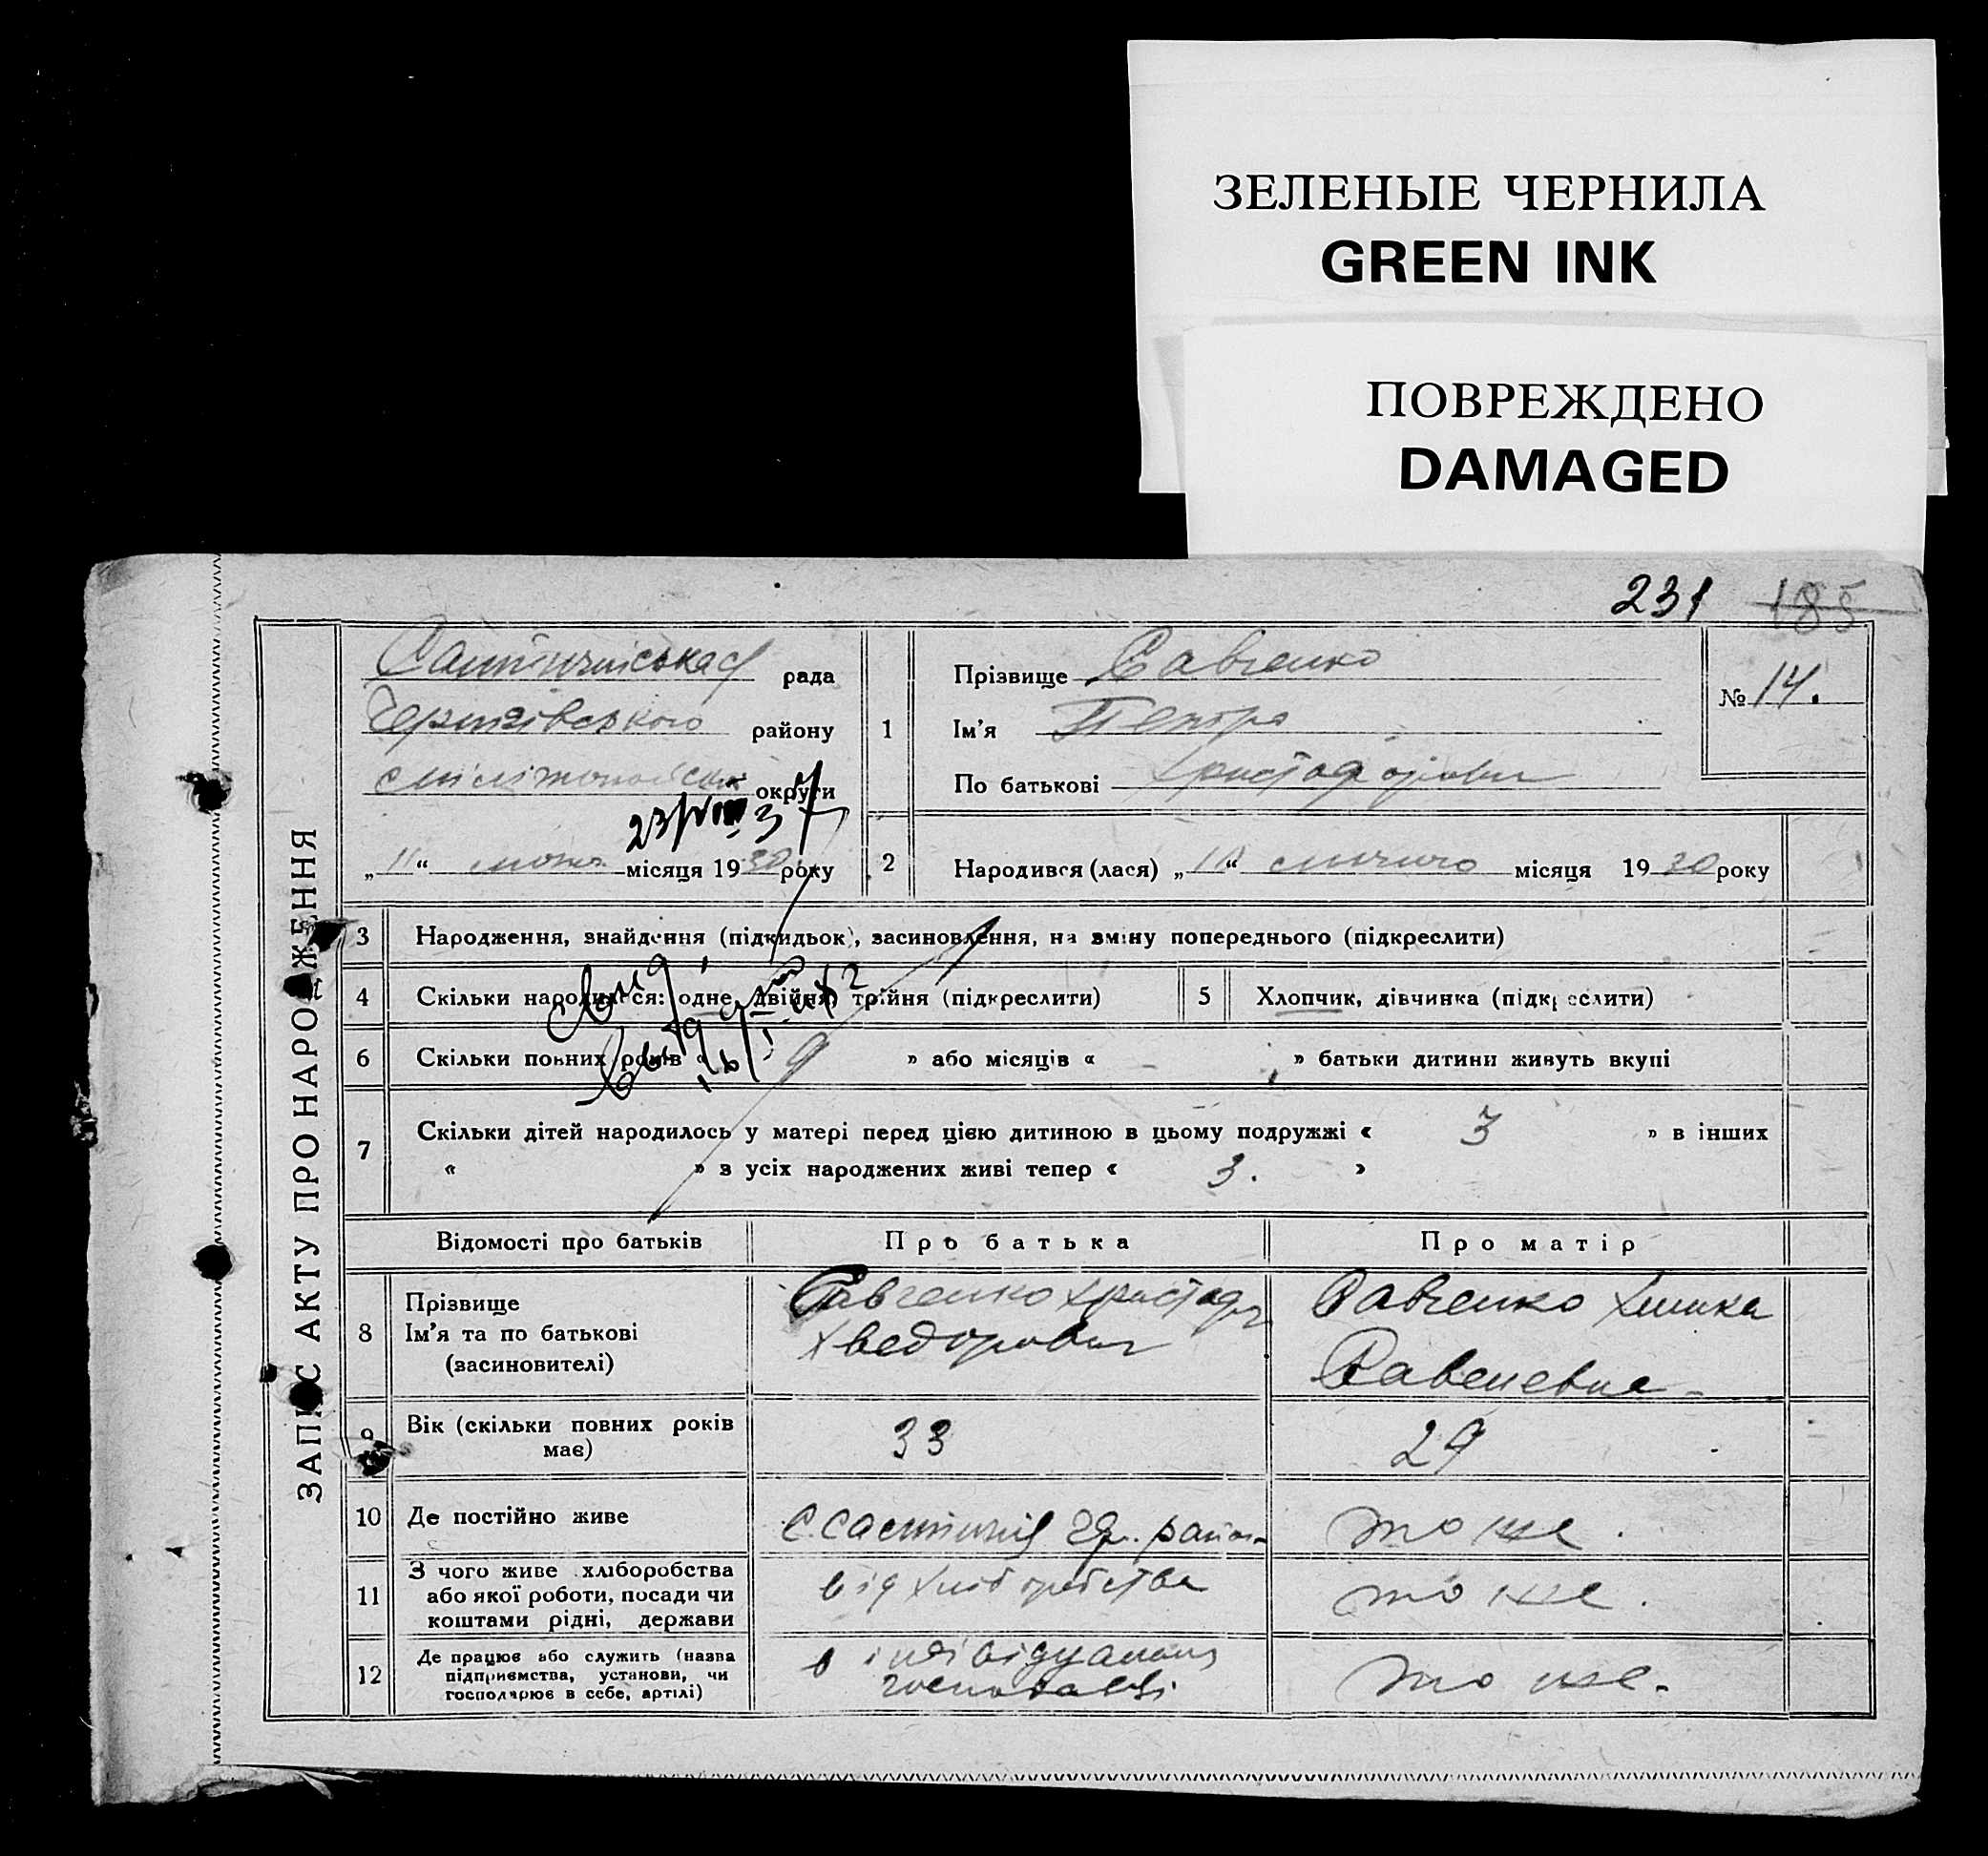 ЗЕЛЕНЫЕ ЧЕРНИЛА
GREEN INK
ПОВРЕЖДЕНО
DAMAGED
231 185
ЗАПИС АКТУ ПРО НАРОДЖЕННЯ
рада
району
округи
„11“ місяця 1930 року
1
Прізвище Савченко
Ім'я Петро
По батькові Христофорович
№ 14.
2
Народився (лася) „ “ місяця 1930 року
3 Народження, знайдення (підкидьок), засиновлення, на зміну попереднього (підкреслити)
4 Скільки народилося: одне, двійня, трійня (підкреслити)
5 Хлопчик, дівчинка (підкреслити)
6 Скільки повних років « 9 » або місяців « – » батьки дитини живуть вкупі
7 Скільки дітей народилось у матері перед цією дитиною в цьому подружжі « 3 » в інших
« » з усіх народжених живі тепер « 3. »
Відомості про батьків Про батька Про матір
8
Прізвище
Ім'я та по батькові
(засиновителі)
Савченко Христофор
Хведорович
Савченко
Савелевна
9 Вік (скільки повних років
має)
33 29
10 Де постійно живе
район
то же.
11
З чого живе хліборобства
або якої роботи, посади чи
коштами рідні, держави
від хліборобства
то же.
12
Де працює або служить (назва
підприємства, установи, чи
господарює в себе, артілі)
в
то же.